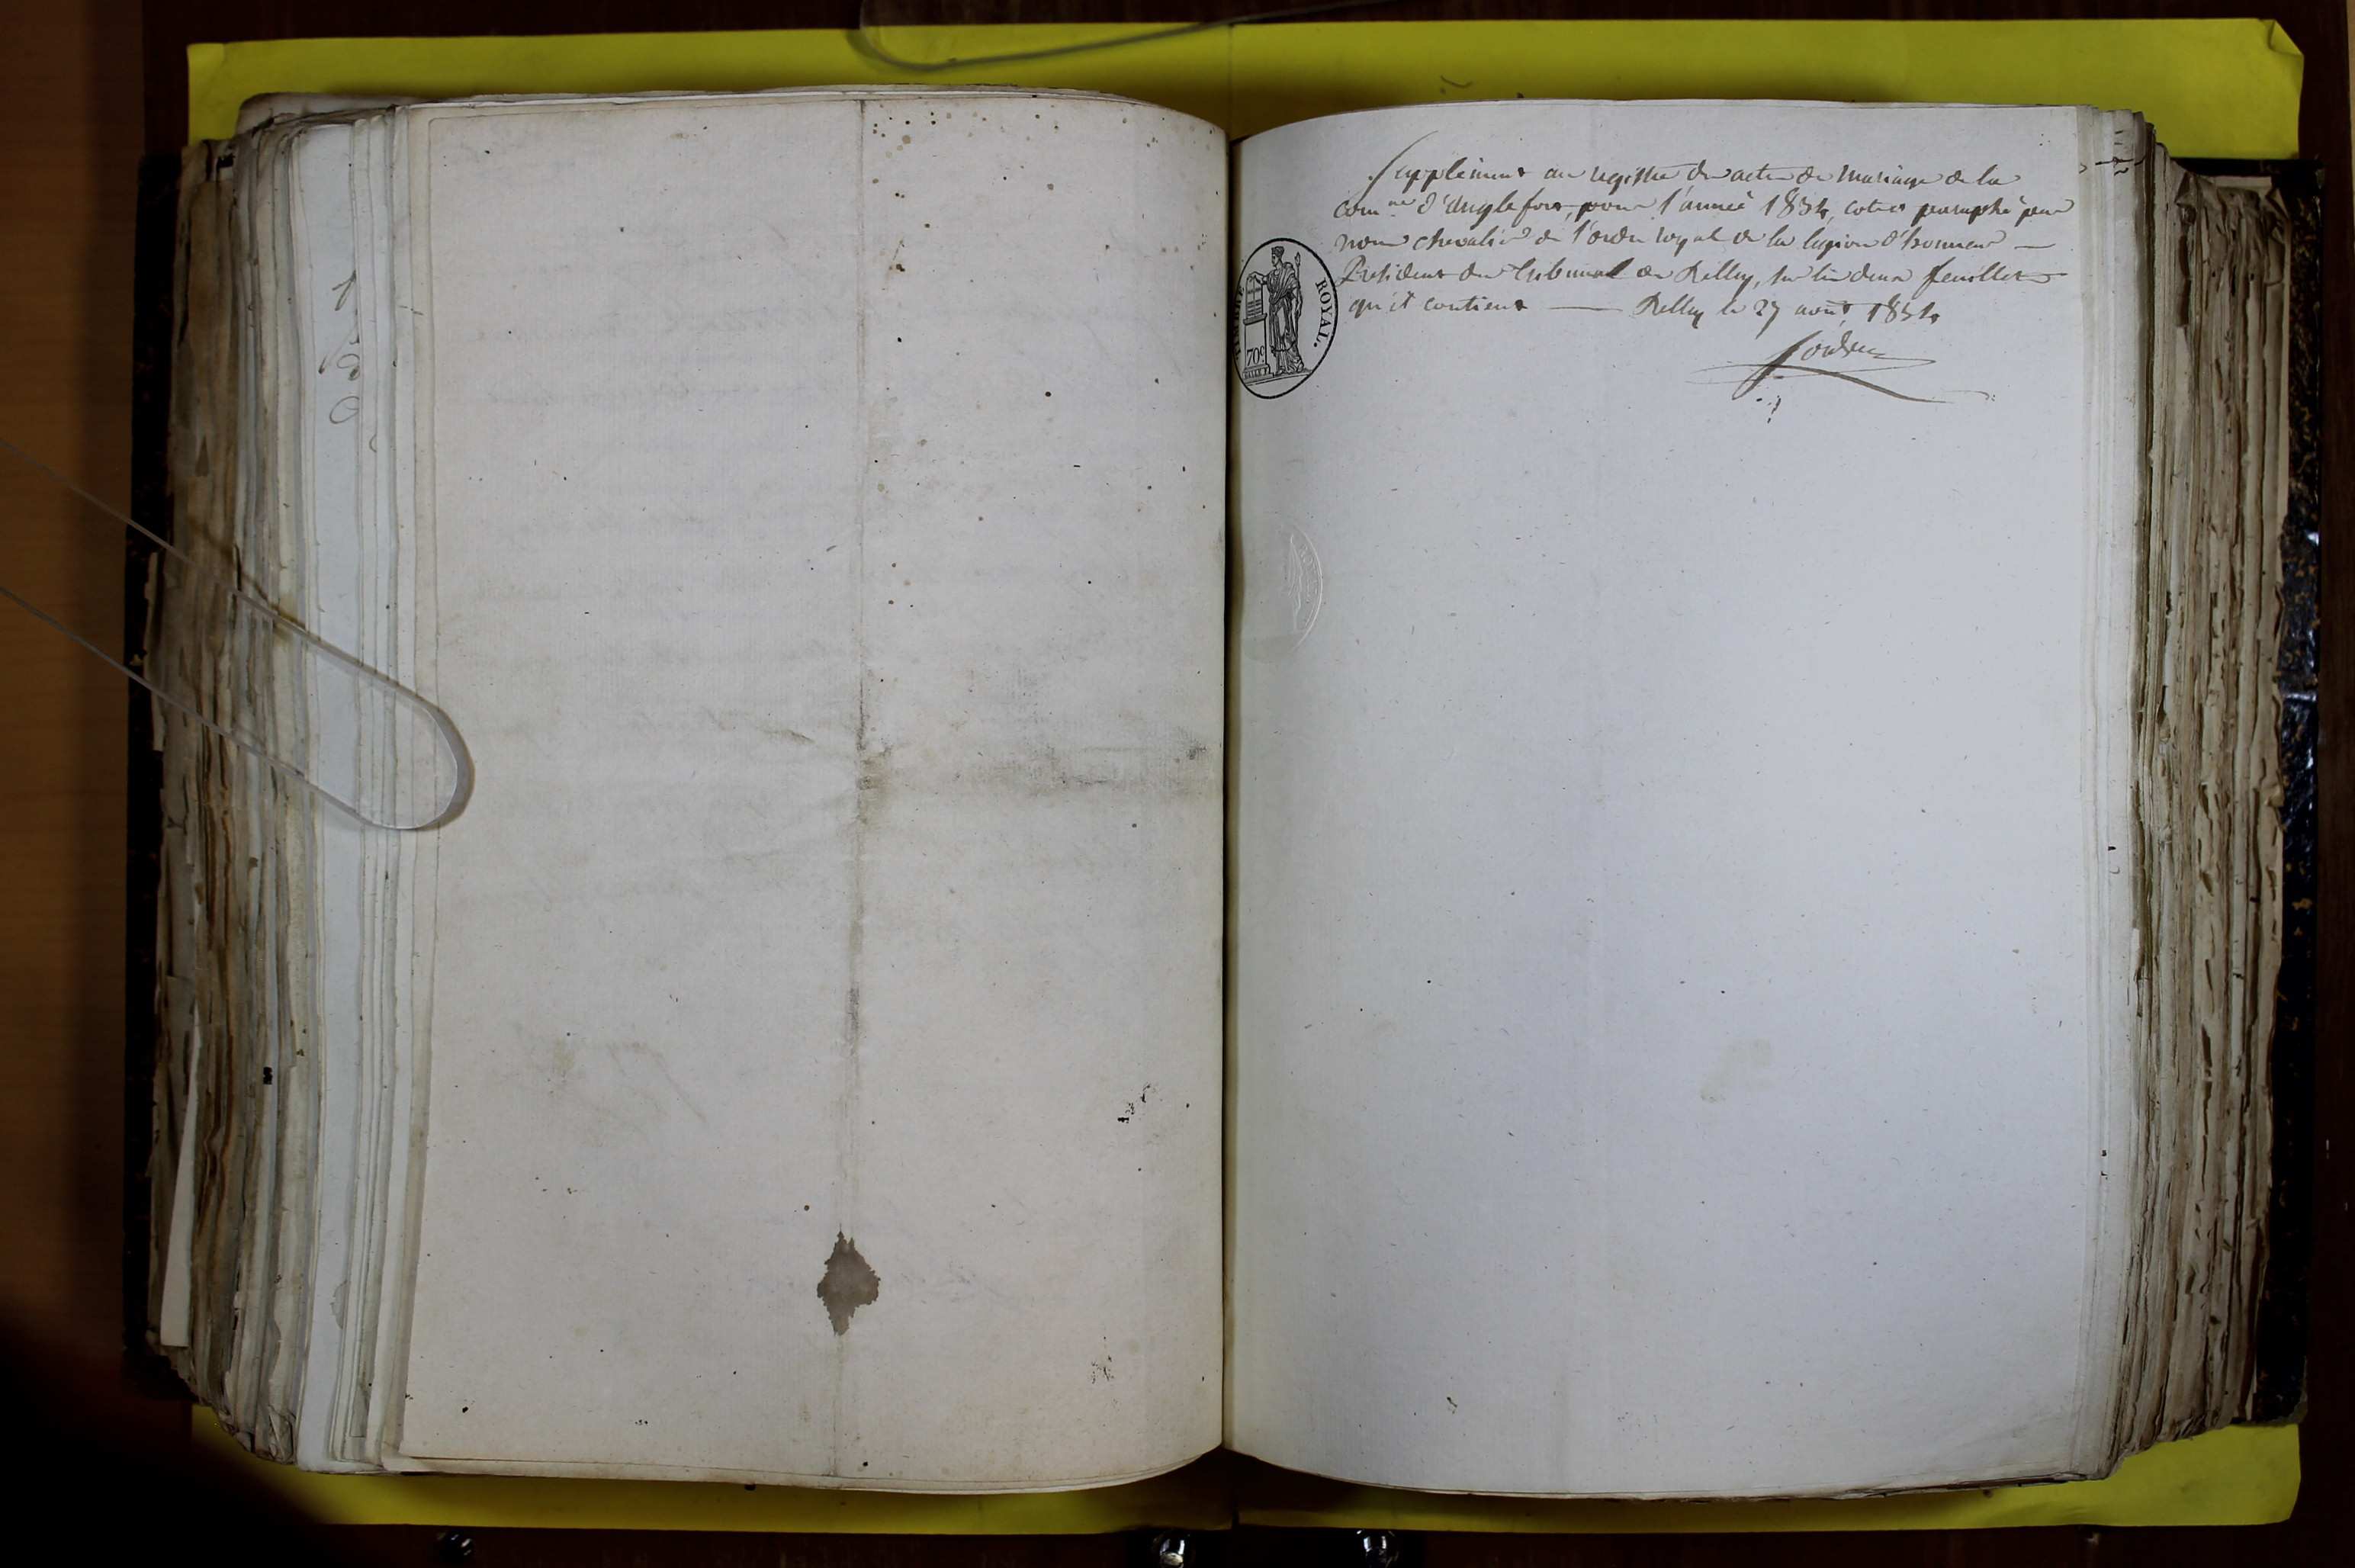 Supplément au registre des actes de mariage de la
com.ne d'Anglefort, pour l'année 1834, coté et paraphé par
nous chevalier de l'ordre royal de la légion d'honneur —
Président du tribunal de Belley, sur les deux feuillets
qu'il contient — Belley le 27 août 1834
TIMBRE ROYAL.
70c